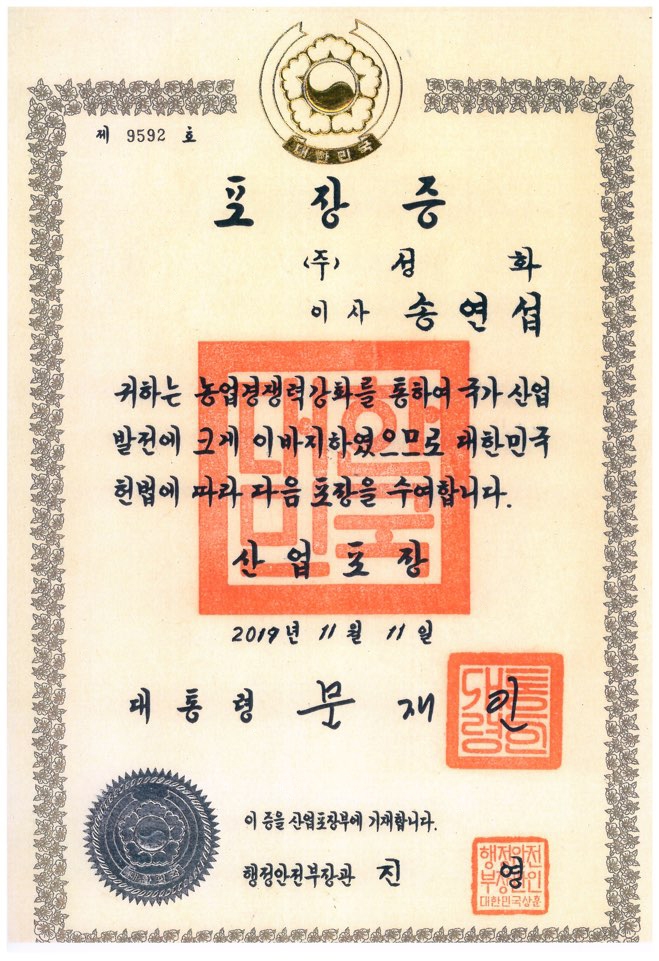 대한민국
제 9592 호
포장증
(주) 성화
이사 송연섭
귀하는 농업경쟁력강화를 통하여 국가 산업
발전에 크게 이바지하였으므로 대한민국
헌법에 따라 다음 포장을 수여합니다.
대한민국
산업포장
2019년 11월 11일
대통령 문재인
대통령인
이 증을 산업포장부에 기재합니다.
행정안전부장관 진영
행정안전
부장관인
대한민국상훈
대한민국